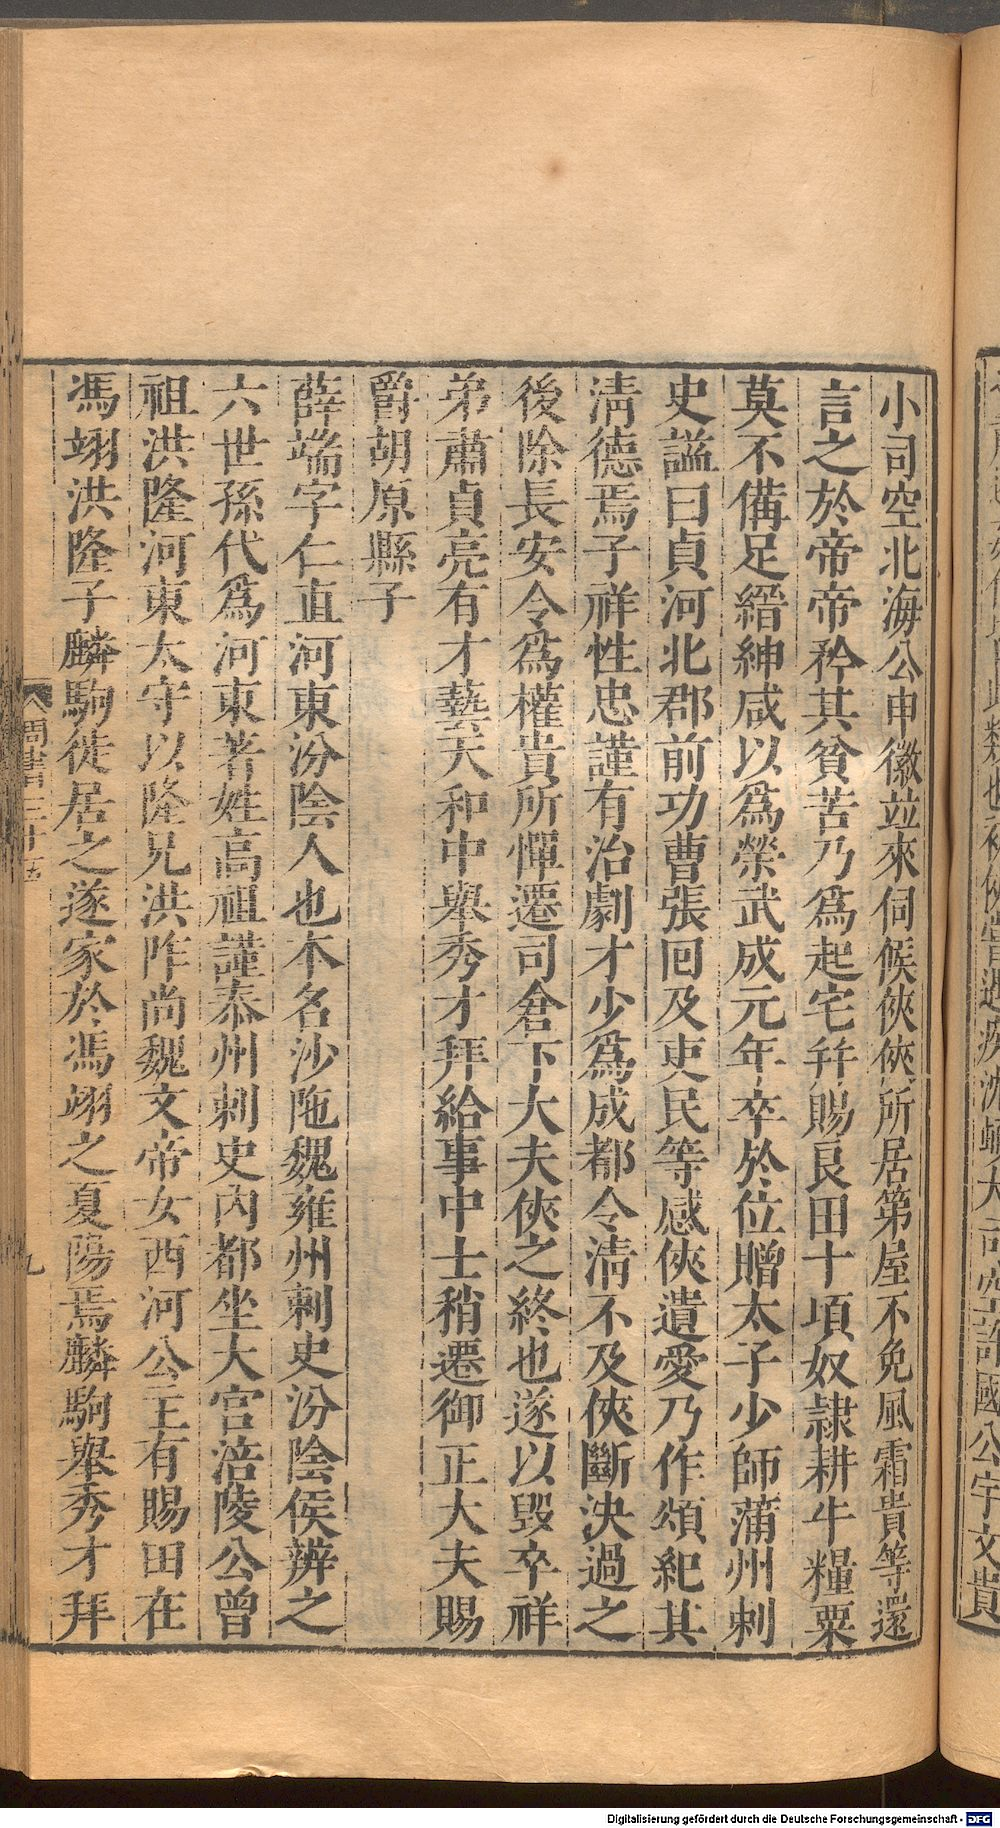 小司空北海公申徽竝來伺候俠俠所居第屋不免風霜貴等還
言之於帝帝矜其貧苦乃爲起宅幷賜良田十頃奴隸耕牛糧粟
莫不備足縉紳咸以爲榮武成元年卒於位贈太子少師蒲州刺
史謚曰貞河北郡前功曹張回及吏民等感俠遺愛乃作頌紀其
淸德焉子祥性忠謹有治劇才少爲成都令淸不及俠斷決過之
後除長安令爲權貴所憚遷司倉下大夫俠之終也遂以毀卒祥
弟肅貞亮有才藝天和中舉秀才拜給事中士稍遷御正大夫賜
爵胡原縣子
薛端字仁直河東汾陰人也本名沙陁魏雍州刺史汾陰侯辨之
六世孫代爲河東著姓高祖謹泰州刺史內都坐大官涪陵公曾
祖洪隆河東太守以隆兄洪阼尚魏文帝女西河公主有賜田在
馮翊洪隆子麟駒徙居之遂家於馮翊之夏陽焉麟駒舉秀才拜
周書三十五
九
大司空許國公宇文貴
Digitalisierung gefördert durch die Deutsche Forschungsgemeinschaft - DFG